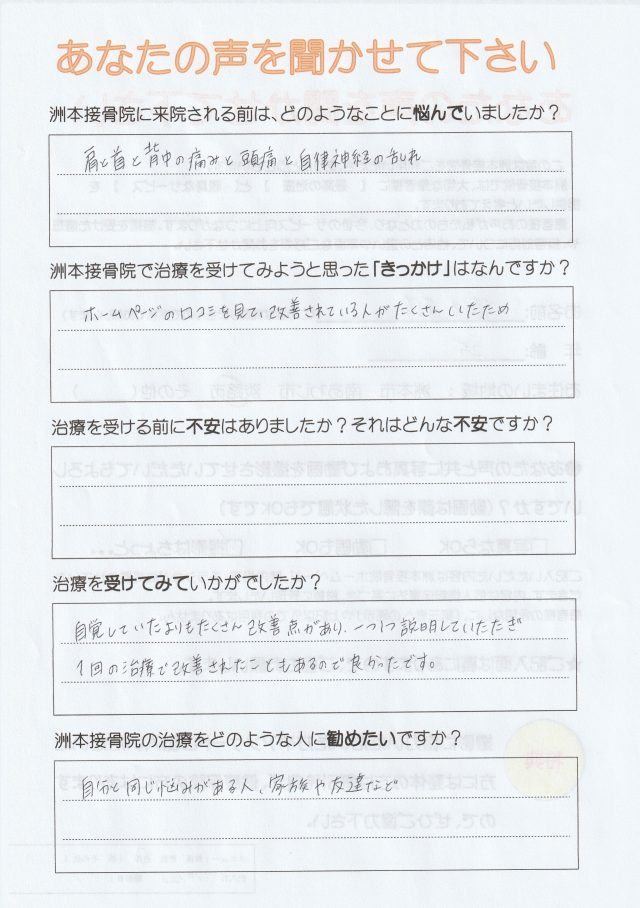 あなたの声を聞かせて下さい
洲本接骨院に来院される前は、どのようなことに悩んでいましたか？
肩と首と背中の痛みと頭痛と自律神経の乱れ
洲本接骨院で治療を受けてみようと思った「きっかけ」はなんですか？
ホームページの口コミを見て、改善されている人がたくさんいたため
治療を受ける前に不安はありましたか？それはどんな不安ですか？
治療を受けてみていかがでしたか？
自覚していたよりもたくさん改善点があり、一つ一つ説明していただき
1回の治療で改善されたこともあるので良かったです。
洲本接骨院の治療をどのような人に勧めたいですか？
自分と同じ悩みがある人、家族や友達など